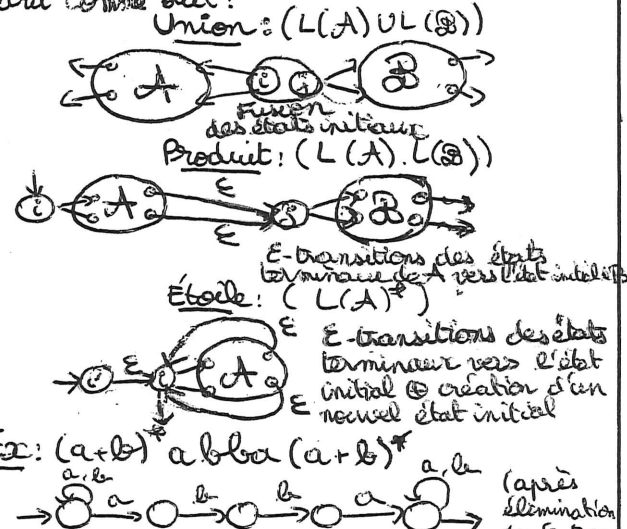 Union : (L(A) ∪ L(B))
A i j B
Fusion
des états initiaux
Produit : (L(A) . L(B))
i A ε ε j B
ε-transitions des états
terminaux de A vers l'état initial
Étoile : (L(A)*)
i' ε i A ε ε
ε-transitions des états
terminaux vers l'état
initial ⊕ création d'un
nouvel état initial
Ex : (a+b)* abba (a+b)*
a, b a b b a a, b
(après
élimination